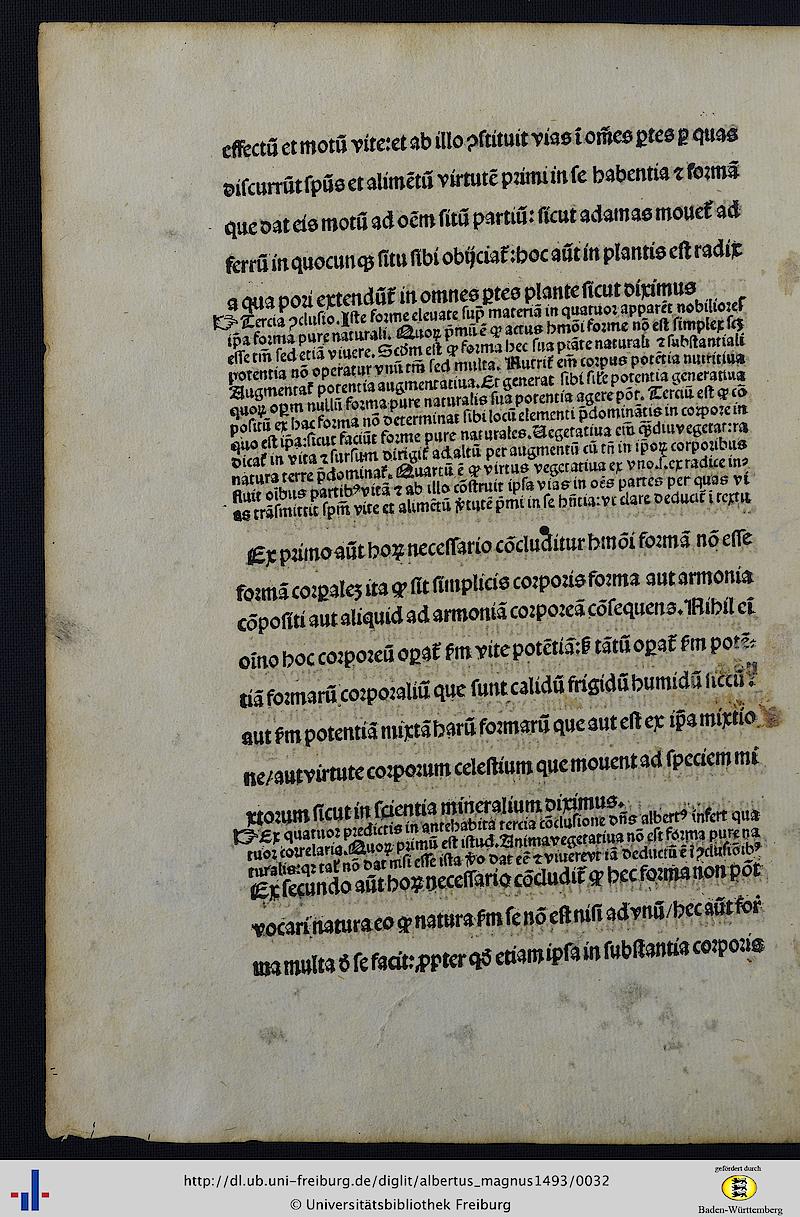 effectū et motū vite:et ab illo ꝯstituit vias ī om̄es ꝑtes ꝑ quas
discurrūt spūs et alimētū virtutē primi in se habentia ⁊ formā
que dat eis motū ad oēm sitū partiū: sicut adamas mouet᷑ ad
ferrū in quocunqꝫ situ sibi obijciat᷑:hoc aūt in plantis est radix
a qua pori extendūt᷑ in omnes ꝑtes plante sicut diximus
☞Tercia ꝯclusio.Iste forme eleuate suꝑ materiā in quatuor apparēt nobiliores
ip̄a forma pure naturali. Quoꝝ p̄mū ē ꝙ actus hmōi forme nō est simplex scꝫ
esse tm̄ sed etiā viuere. Scd̄m est ꝙ forma hec sua ptāte naturali ⁊ substantiali
potentia nō operatur vnū tm̄ sed multa. Nutrit᷑ em̄ corpus potētia nutritiua
Augmentat᷑ potentia augmentatiua.Et generat sibi sil̄e potentia generatiua
quoꝝ opm̄ nullū forma pure naturalis sua potentia agere pōt. Terciū est ꝙ cō
positū ex hac forma nō determinat sibi locū elementi p̄dominātis in corpore in
quo est ip̄a:sicut faciūt forme pure naturales.Uegetatiua em̄ qꝫdiu vegetat:ra
dicat᷑ in vita ⁊ sursum dirigit᷑ ad altū per augmentū cū tn̄ in ip̄oꝝ corporibus
natura terre p̄dominat᷑. Quartū ē ꝙ virtus vegetatiua ex vno.s.ex radice in⸗
fluit oībus partibꝰ vitā ⁊ ab illo cōstruit ipsa vias in oēs partes per quas vi
as trāsmittit spm̄ vite et alimētū v̓tutē p̄mi in se hn̄tia:vt clare deducit᷑ ī textu
Ex primo aūt hoꝝ necessario cōcluditur hmōi formā nō esse
formā corꝑalēꝫ ita ꝙ sit simplicis corporis forma aut armonia
cōpositi aut aliquid ad armoniā corporeā cōsequens.Nihil eī
oīno hoc corporeū oꝑat᷑ ẜm vite potētiā:ꝫ tātū oꝑat᷑ ẜm potē⸗
tiā formarū corporaliū que sunt calidū frigidū humidū siccū:
aut ẜm potentiā mixtā harū formarū que aut est ex ip̄a mixtio
ne/aut virtute corporum celestium que mouent ad speciem mi
xtorum sicut in scientia mineralium diximus.
☞Ex quatuor predictis in antehabita tercia cōclusione dn̄s albertꝰ infert qua
tuor correlaria.Quoꝝ primū est istud.Anima vegetatiua nō est forma pure na
turalis:qꝛ tal̓ nō dat nisi esse ista v̓o dat eē ⁊ viuere vt iā deductū ē ī ꝯclusiōibꝰ
Ex secundo aūt hoꝝ necessario cōcludit᷑ ꝙ hec forma non pōt
vocari natura eo ꝙ natura ẜm se nō est nisi ad vnū/hec aūt for
ma multa d̓ se facit:ꝓpter qd̓ etiam ipsa in substantia corporis
http://dl.ub.uni-freiburg.de/diglit/albertus_magnus1493/0032
© Universitätsbibliothek Freiburg
gefördert durch
Baden-Württemberg